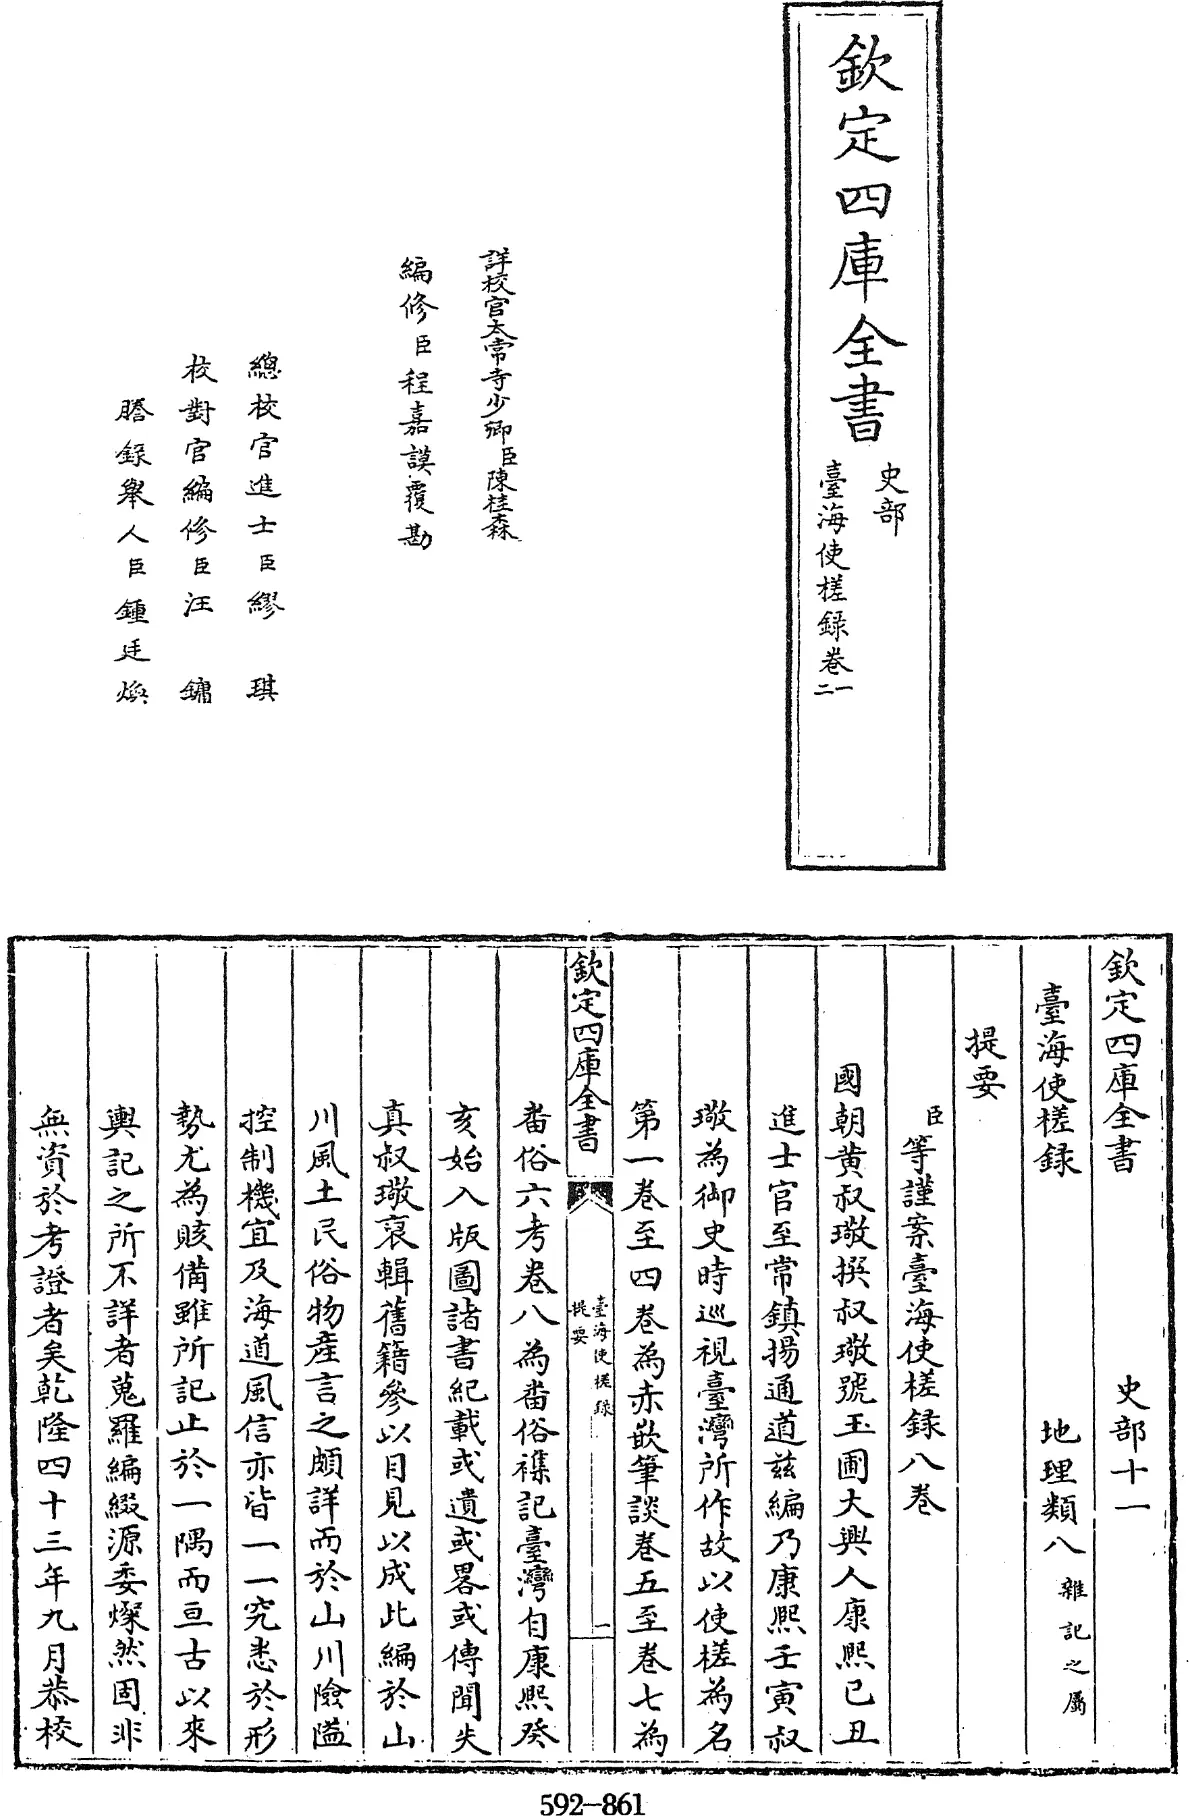 欽定四庫全書
史部
臺海使槎録卷一
二
詳校官太常寺少卿臣陳桂森
編修臣程嘉謨覆勘
總校官進士臣繆琪
校對官編修臣汪鏞
謄錄舉人臣鍾廷煥
欽定四庫全書 史部十一
臺海使槎録 地理類八 雜記之屬
提要
臣等謹案臺海使槎録八卷
國朝黄叔璥撰叔璥號玉圃大興人康熙己丑
進士官至常鎮揚通道兹編乃康熙壬寅叔
璥為御史時巡視臺灣所作故以使槎為名
第一卷至四卷為赤嵌筆談卷五至卷七為
欽定四庫全書
臺海使槎録
提要
一
畨俗六考卷八為畨俗襍記臺灣自康熙癸
亥始入版圖諸書紀載或遺或畧或傳聞失
真叔璥裒輯舊籍參以目見以成此編於山
川風土民俗物產言之頗詳而於山川險隘
控制機宜及海道風信亦皆一一究悉於形
勢尤為賅備雖所記止於一隅而亘古以來
輿記之所不詳者蒐羅編綴源委燦然固非
無資於考證者矣乾隆四十三年九月恭校
592-861